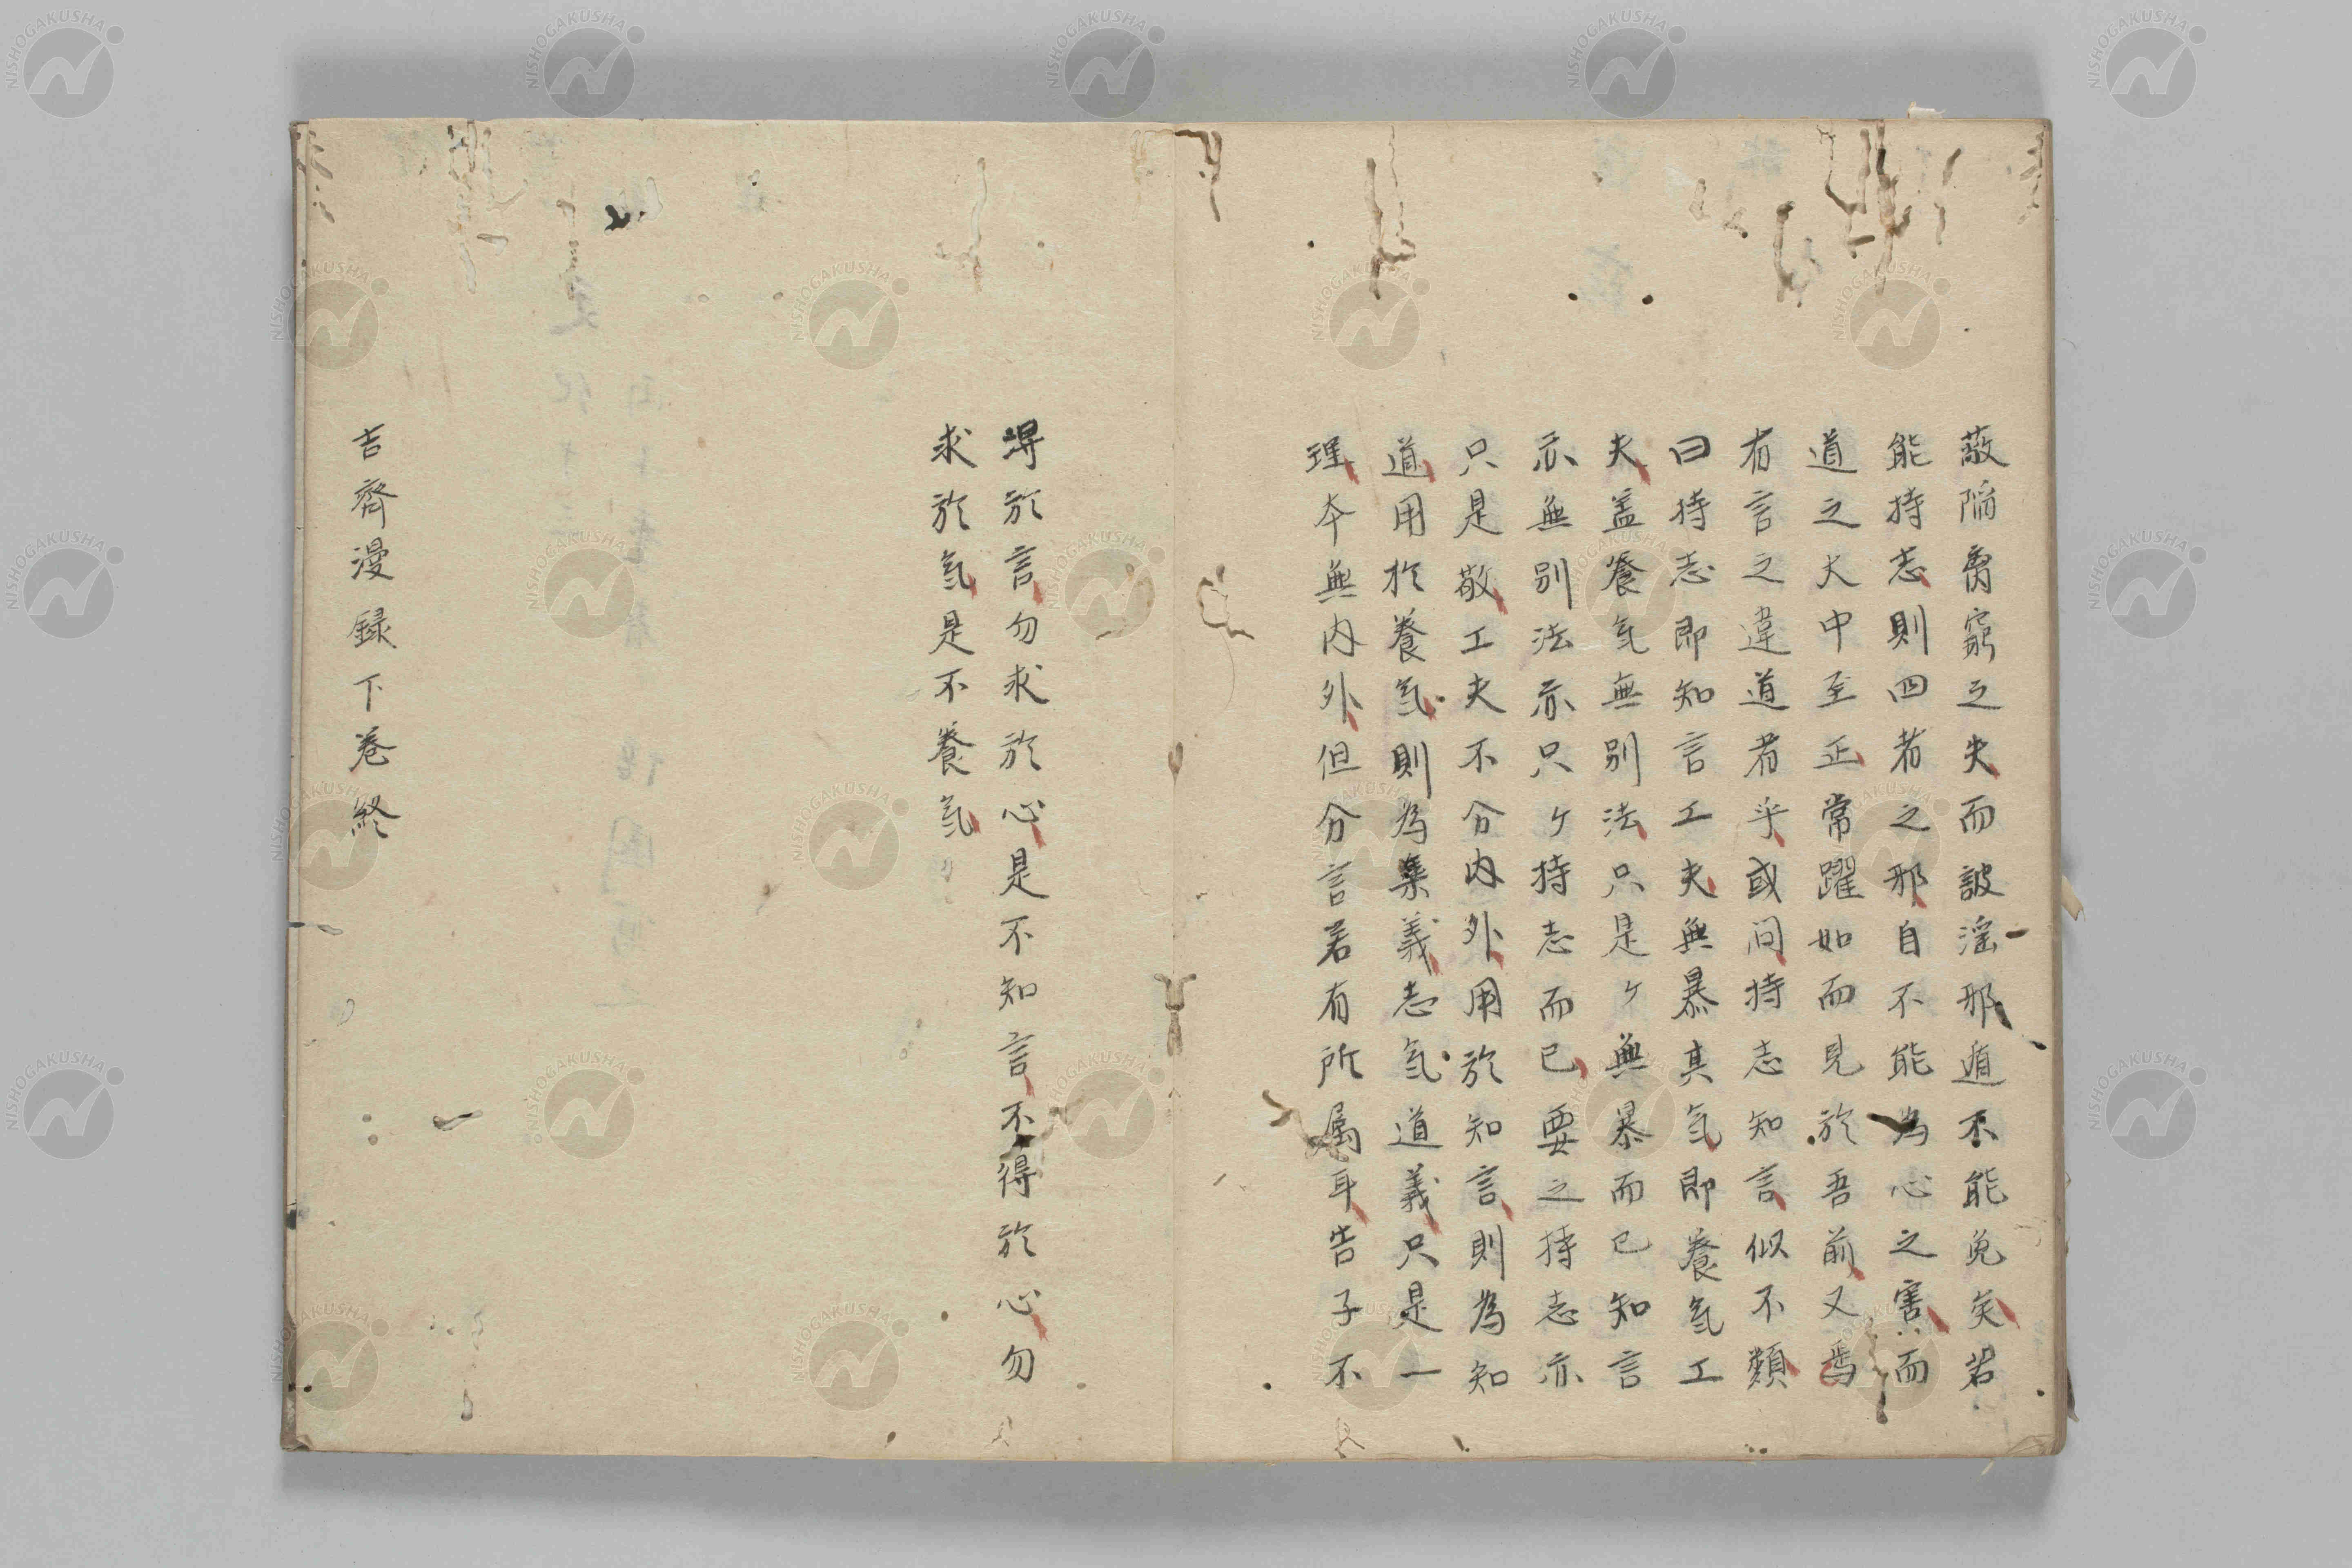 蔽陥离窮之失而詖淫邪遁不能免矣若
能持志則四者之邪自不能為心之害而
道之大中至正常躍如而見於吾前又焉
有言之違道者乎或問持志知言似不類
曰持志即知言工夫無暴其気即養気工
夫盖養気無別法只是ケ無暴而已知言
亦無別法亦只ケ持志而已要之持志亦
只是敬工夫不分内外用於知言則為知
道用於養気則為集義志気道義只是一
理本無内外但分言若有所属耳告子不
得於言勿求於心是不知言不得於心勿
求於気是不養気
吉齊漫録下巻終
NISHOGAKUSHA